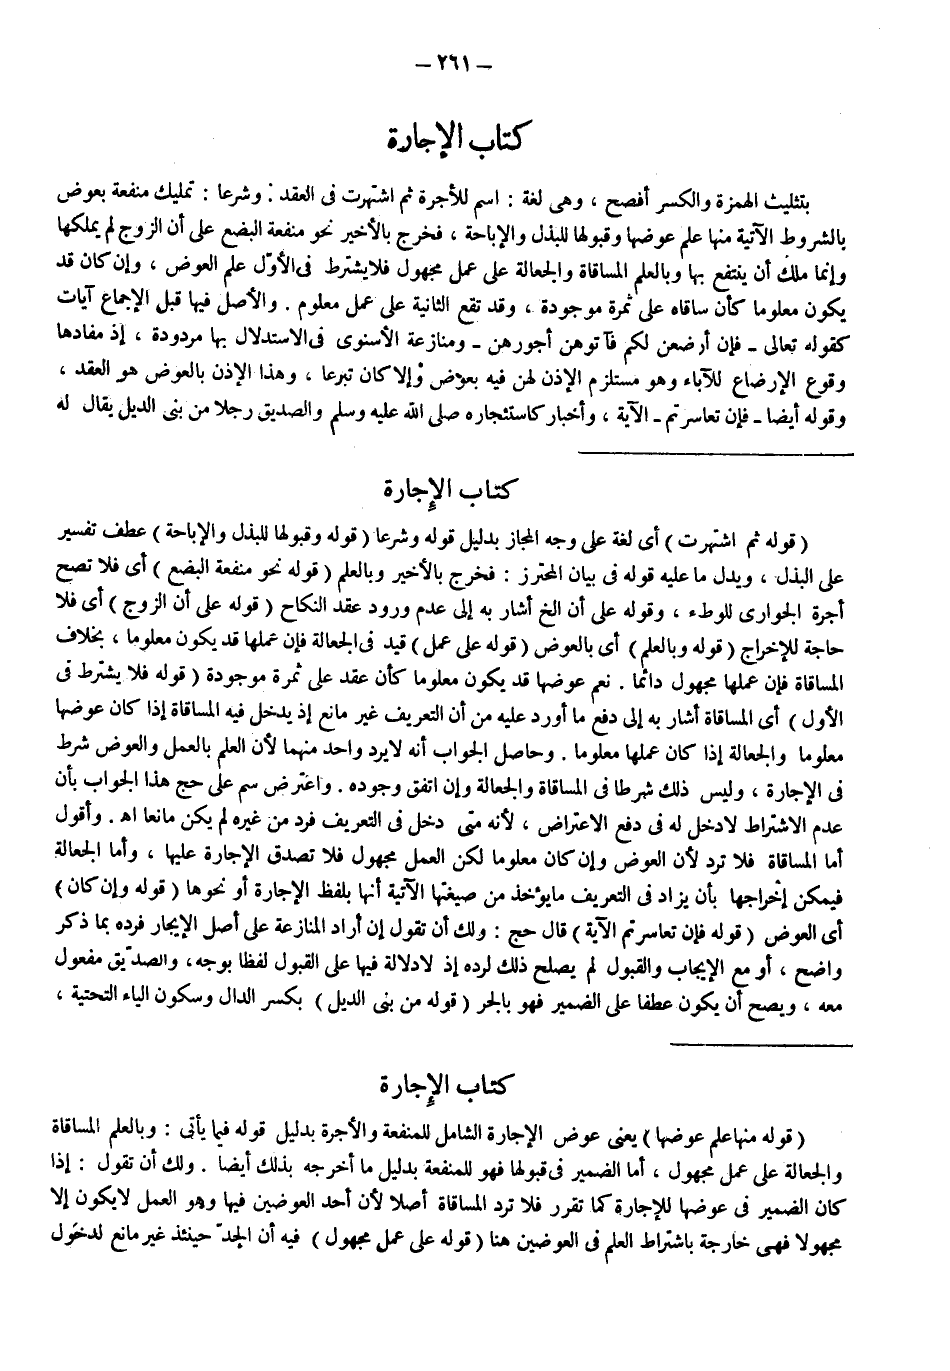 — ٢٦١ —
كتاب الإجارة
بتثليث الهمزة والكسر أفصح ، وهى لغة : اسم للأجرة ثم اشتهرت فى العقد : وشرعا : تمليك منفعة بعوض
بالشروط الآتية منها علم عوضها وقبولها للبذل والإباحة ، فخرج بالأخير نحو منفعة البضع على أن الزوج لم يملكها
وإنما ملك أن ينتفع بها وبالعلم المساقاة والجعالة على عمل مجهول فلا يشترط فى الأوّل علم العوض ، وإن كان قد
يكون معلوما كأن ساقاه على ثمرة موجودة ، وقد تقع الثانية على عمل معلوم . والأصل فيها قبل الإجماع آيات
كقوله تعالى ـ فإن أرضعن لكم فآتوهن أجورهن ـ ومنازعة الأسنوى فى الاستدلال بها مردودة ، إذ مفادها
وقوع الإرضاع للآباء وهو مستلزم الإذن لهن فيه بعوض وإلا كان تبرعا ، وهذا الإذن بالعوض هو العقد ،
وقوله أيضا ـ فإن تعاسرتم ـ الآية ، وأخبار كاستئجاره صلى الله عليه وسلم والصديق رجلا من بنى الديل يقال له
كتاب الإجارة
( قوله ثم اشتهرت ) أى لغة على وجه المجاز بدليل قوله وشرعا ( قوله وقبولها للبذل والإباحة ) عطف تفسير
على البذل ، ويدل ما عليه قوله فى بيان المحترز : فخرج بالأخير وبالعلم ( قوله نحو منفعة البضع ) أى فلا تصح
أجرة الجوارى للوطء ، وقوله على أن الخ أشار به إلى عدم ورود عقد النكاح ( قوله على أن الزوج ) أى فلا
حاجة للإخراج ( قوله وبالعلم ) أى بالعوض ( قوله على عمل ) قيد فى الجعالة فإن عملها قد يكون معلوما ، بخلاف
المساقاة فإن عملها مجهول دائما . نعم عوضها قد يكون معلوما كأن عقد على ثمرة موجودة ( قوله فلا يشترط فى
الأول ) أى المساقاة أشار به إلى دفع ما أورد عليه من أن التعريف غير مانع إذ يدخل فيه المساقاة إذا كان عوضها
معلوما والجعالة إذا كان عملها معلوما . وحاصل الجواب أنه لا يرد واحد منهما لأن العلم بالعمل والعوض شرط
فى الإجارة ، وليس ذلك شرطا فى المساقاة والجعالة وإن اتفق وجوده . واعترض سم على حج هذا الجواب بأن
عدم الاشتراط لا دخل له فى دفع الاعتراض ، لأنه متى دخل فى التعريف فرد من غيره لم يكن مانعا اهـ . وأقول
أما المساقاة فلا ترد لأن العوض وإن كان معلوما لكن العمل مجهول فلا تصدق الإجارة عليها ، وأما الجعالة
فيمكن إخراجها بأن يزاد فى التعريف ما يؤخذ من صيغتها الآتية أنها بلفظ الإجارة أو نحوها ( قوله وإن كان )
أى العوض ( قوله فإن تعاسرتم الآية ) قال حج : ولك أن تقول إن أراد المنازعة على أصل الإيجار فرده بما ذكر
واضح ، أو مع الإيجاب والقبول لم يصلح ذلك لرده إذ لا دلالة فيها على القبول لفظا بوجه ، والصدّيق مفعول
معه ، ويصح أن يكون عطفا على الضمير فهو بالجر ( قوله من بنى الديل ) بكسر الدال وسكون الياء التحتية ،
كتاب الإجارة
( قوله منها علم عوضها ) يعنى عوض الإجارة الشامل للمنفعة والأجرة بدليل قوله فيما يأتى : وبالعلم المساقاة
والجعالة على عمل مجهول ، أما الضمير فى قبولها فهو للمنفعة بدليل ما أخرجه بذلك أيضا . ولك أن تقول : إذا
كان الضمير فى عوضها للإجارة كما تقرر فلا ترد المساقاة أصلا لأن أحد العوضين فيها وهو العمل لا يكون إلا
مجهولا فهى خارجة باشتراط العلم فى العوضين هنا ( قوله على عمل مجهول ) فيه أن الحدّ حينئذ غير مانع لدخول